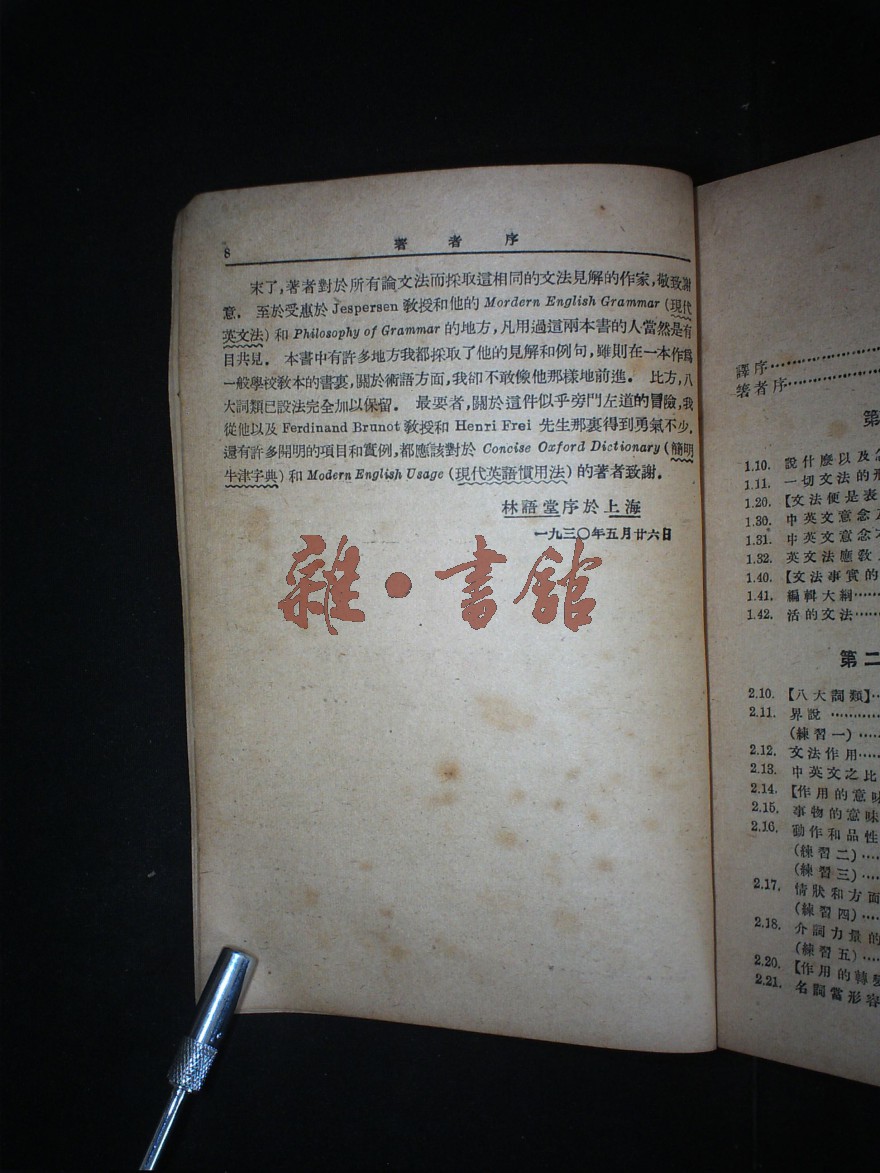 8 著者序
末了，著者對於所有論文法而採取這相同的文法見解的作家，敬致謝
意． 至於受惠於 Jespersen 敎授和他的 Mordern English Grammar (現代
英文法) 和 Philosophy of Grammar 的地方，凡用過這兩本書的人當然是有
目共見． 本書中有許多地方我都採取了他的見解和例句，雖則在一本作爲
一般學校敎本的書裏，關於術語方面，我卻不敢像他那樣地前進． 比方，八
大詞類已設法完全加以保留． 最要者，關於這件似乎旁門左道的冒險，我
從他以及 Ferdinand Brunot 敎授和 Henri Frei 先生那裏得到勇氣不少．
還有許多開明的項目和實例，都應該對於 Concise Oxford Dictionary (簡明
牛津字典) 和 Modern English Usage (現代英語慣用法) 的著者致謝．
林語堂序於上海
一九三〇年五月廿六日
雜・書館
譯序
著者序
第
1.10. 說什麼以及
1.11. 一切文法的
1.20. 【文法便是表
1.30. 中英文意念
1.31. 中英文意念
1.32. 英文法應敎
1.40. 【文法事實的
1.41. 編輯大綱
1.42. 活的文法
第二
2.10. 【八大詞類】
2.11. 界說
(練習一)
2.12. 文法作用
2.13. 中英文之比
2.14. 【作用的意味
2.15. 事物的意味
2.16. 動作和品性
(練習二)
(練習三)
2.17. 情狀和方面
(練習四)
2.18. 介詞力量的
(練習五)
2.20. 【作用的轉變
2.21. 名詞當形容